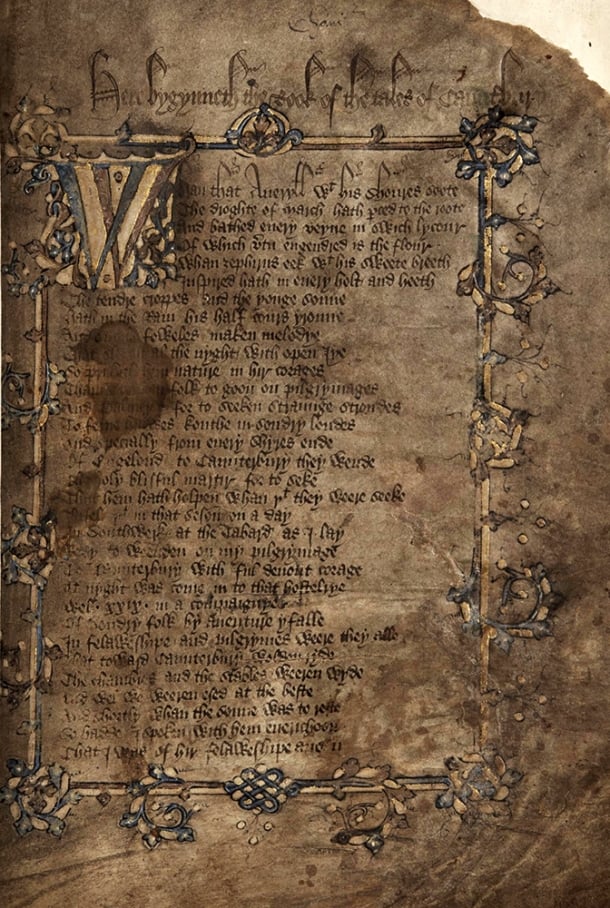 Chaucer
Here bygynneth the Book of the tales of Caunterbury
Whan that Aueryll wt his shoures soote
The droghte of march hath pced to the roote
And bathed euery veyne in swich lycour
Of which vtu engendred is the flour
Whan zephirus eek wt his sweete breeth
Inspired hath in euery holt and heeth
The tendre croppes and the yonge sonne
Hath in the Ram his half cours yronne
And foweles maken melodye
That al the nyght with open Iye
So priketh hem nature in hir corages
Thanne folk to goon on pilgrymages
And for to seeken straunge strondes
To ferne halwes kouthe in sondry londes
And specially from euery shyres ende
Of Engelond to Caunterbury they wende
The holy blisful martir for to seke
That hem hath holpen whan þt they weere seeke
Bifel þt in that seson on a day
In Southwerk at the Tabard as I lay
Redy to wenden on my pilgrymage
To Caunterbury with ful deuout corage
At nyght was come in to that hostelrye
Wel xxix in a compaignye
Of sondry folk by auenture yfalle
In felaweshipe and pilgrymes weere they alle
That toward Caunterbury wolden ryde
The chambres and the stables weeren wyde
And wel we weeren esed at the beste
And shortly whan the sonne was to reste
So hadde I spoken with hem euerichoon
That I was of hir felaweshipe anon